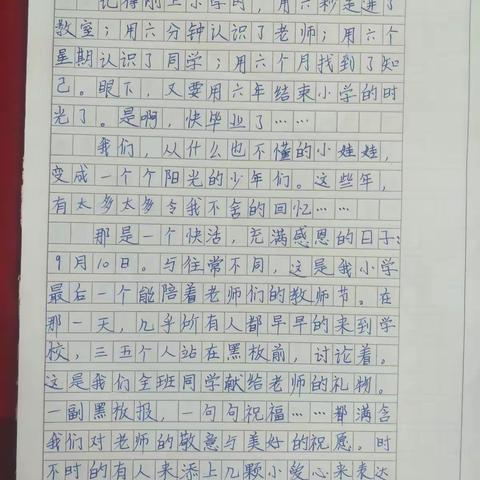 记得刚上小学时，用六秒走进了
教室；用六分钟认识了老师；用六个
星期认识了同学；用六个月找到了知
己。眼下，又要用六年结束小学的时
光了。是啊，快毕业了……
我们，从什么也不懂的小娃娃，
变成一个个阳光的少年们。这些年，
有太多太多令我不舍的回忆……
那是一个快活，充满感恩的日子：
9月10日。与往常不同，这是我小学
最后一个能陪着老师们的教师节。在
那一天，几乎所有人都早早的来到学
校，三五个人站在黑板前，讨论着。
这是我们全班同学献给老师的礼物。
一副黑板报，一句句祝福……都满含
我们对老师的敬意与美好的祝愿。时
不时的有人来添上几颗小爱心来表达